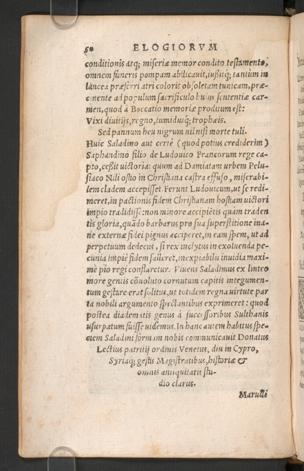 60 ELOGIORVM
conditionis atq; miseriæ memor condito testamento,
omnem funeris pompam abdicauit, iussitq; tantùm in
lancea præferri atri coloris obsoletam tunicam, præ-
cinente ad populum sacrificulo huius sententiæ car-
men, quod à Boccatio memoriæ proditum est:
Vixi diuitijs, regno, tumidusq; trophæis.
Sed pannum heu nigrum nil nisi morte tuli.
Huic Saladino aut certè (quod potius crediderim)
Saphandino filio de Ludouico Francorum rege ca-
pto, cessit victoria: quum ad Damiatam vrbem Pelu-
siaco Nili ostio in Christiana castra effuso, miserabi-
lem cladem accepisset. Ferunt Ludouicum, vt se redi-
meret, in pactionis fidem Christianam hostiam victori
impio tradidisse: non minore accipientis quàm traden
tis gloria, quàdo barbarus pro sua superstitione ina-
ne externæ fidei pignus acciperet, in eam spem, vt ad
perpetuum dedecus, si rex inclytus in exoluenda pe-
cunia impiè fidem falleret, inexpiabilu inuidia maxi-
mè pio regi conflaretur. Viuens Saladinus ex linteo
more gentis cōuoluto cornutum capitis integumen-
tum gestare erat solitus, vt totidem regna virtute par
ta nobili argumento spectantibus exprimeret: quod
postea diadematis genus à successoribus Sulthanis
vsurpatum fuisse videmus. In hanc autem habitus spe-
ciem Saladini formam nobis communicauit Donatus
Lectius patritij ordinis Venetus, diu in Cypro,
Syriaq; gestis Magistratibus, historiæ &
omnis antiquitatis stu-
dio clarus.
Marulli